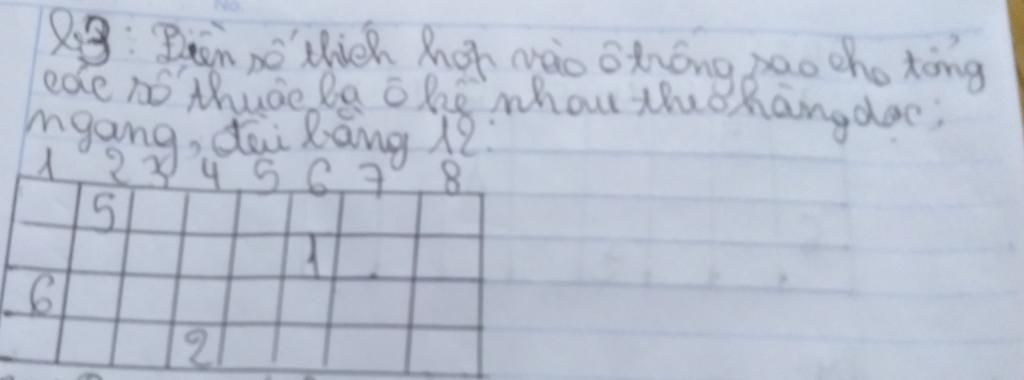 B3: Điền số thích hợp vào ô trống sao cho tổng
các số thuộc ba ô kề nhau theo hàng dọc;
ngang, đều bằng 12.
1 2 3 4 5 6 7 8
5
1
6
2